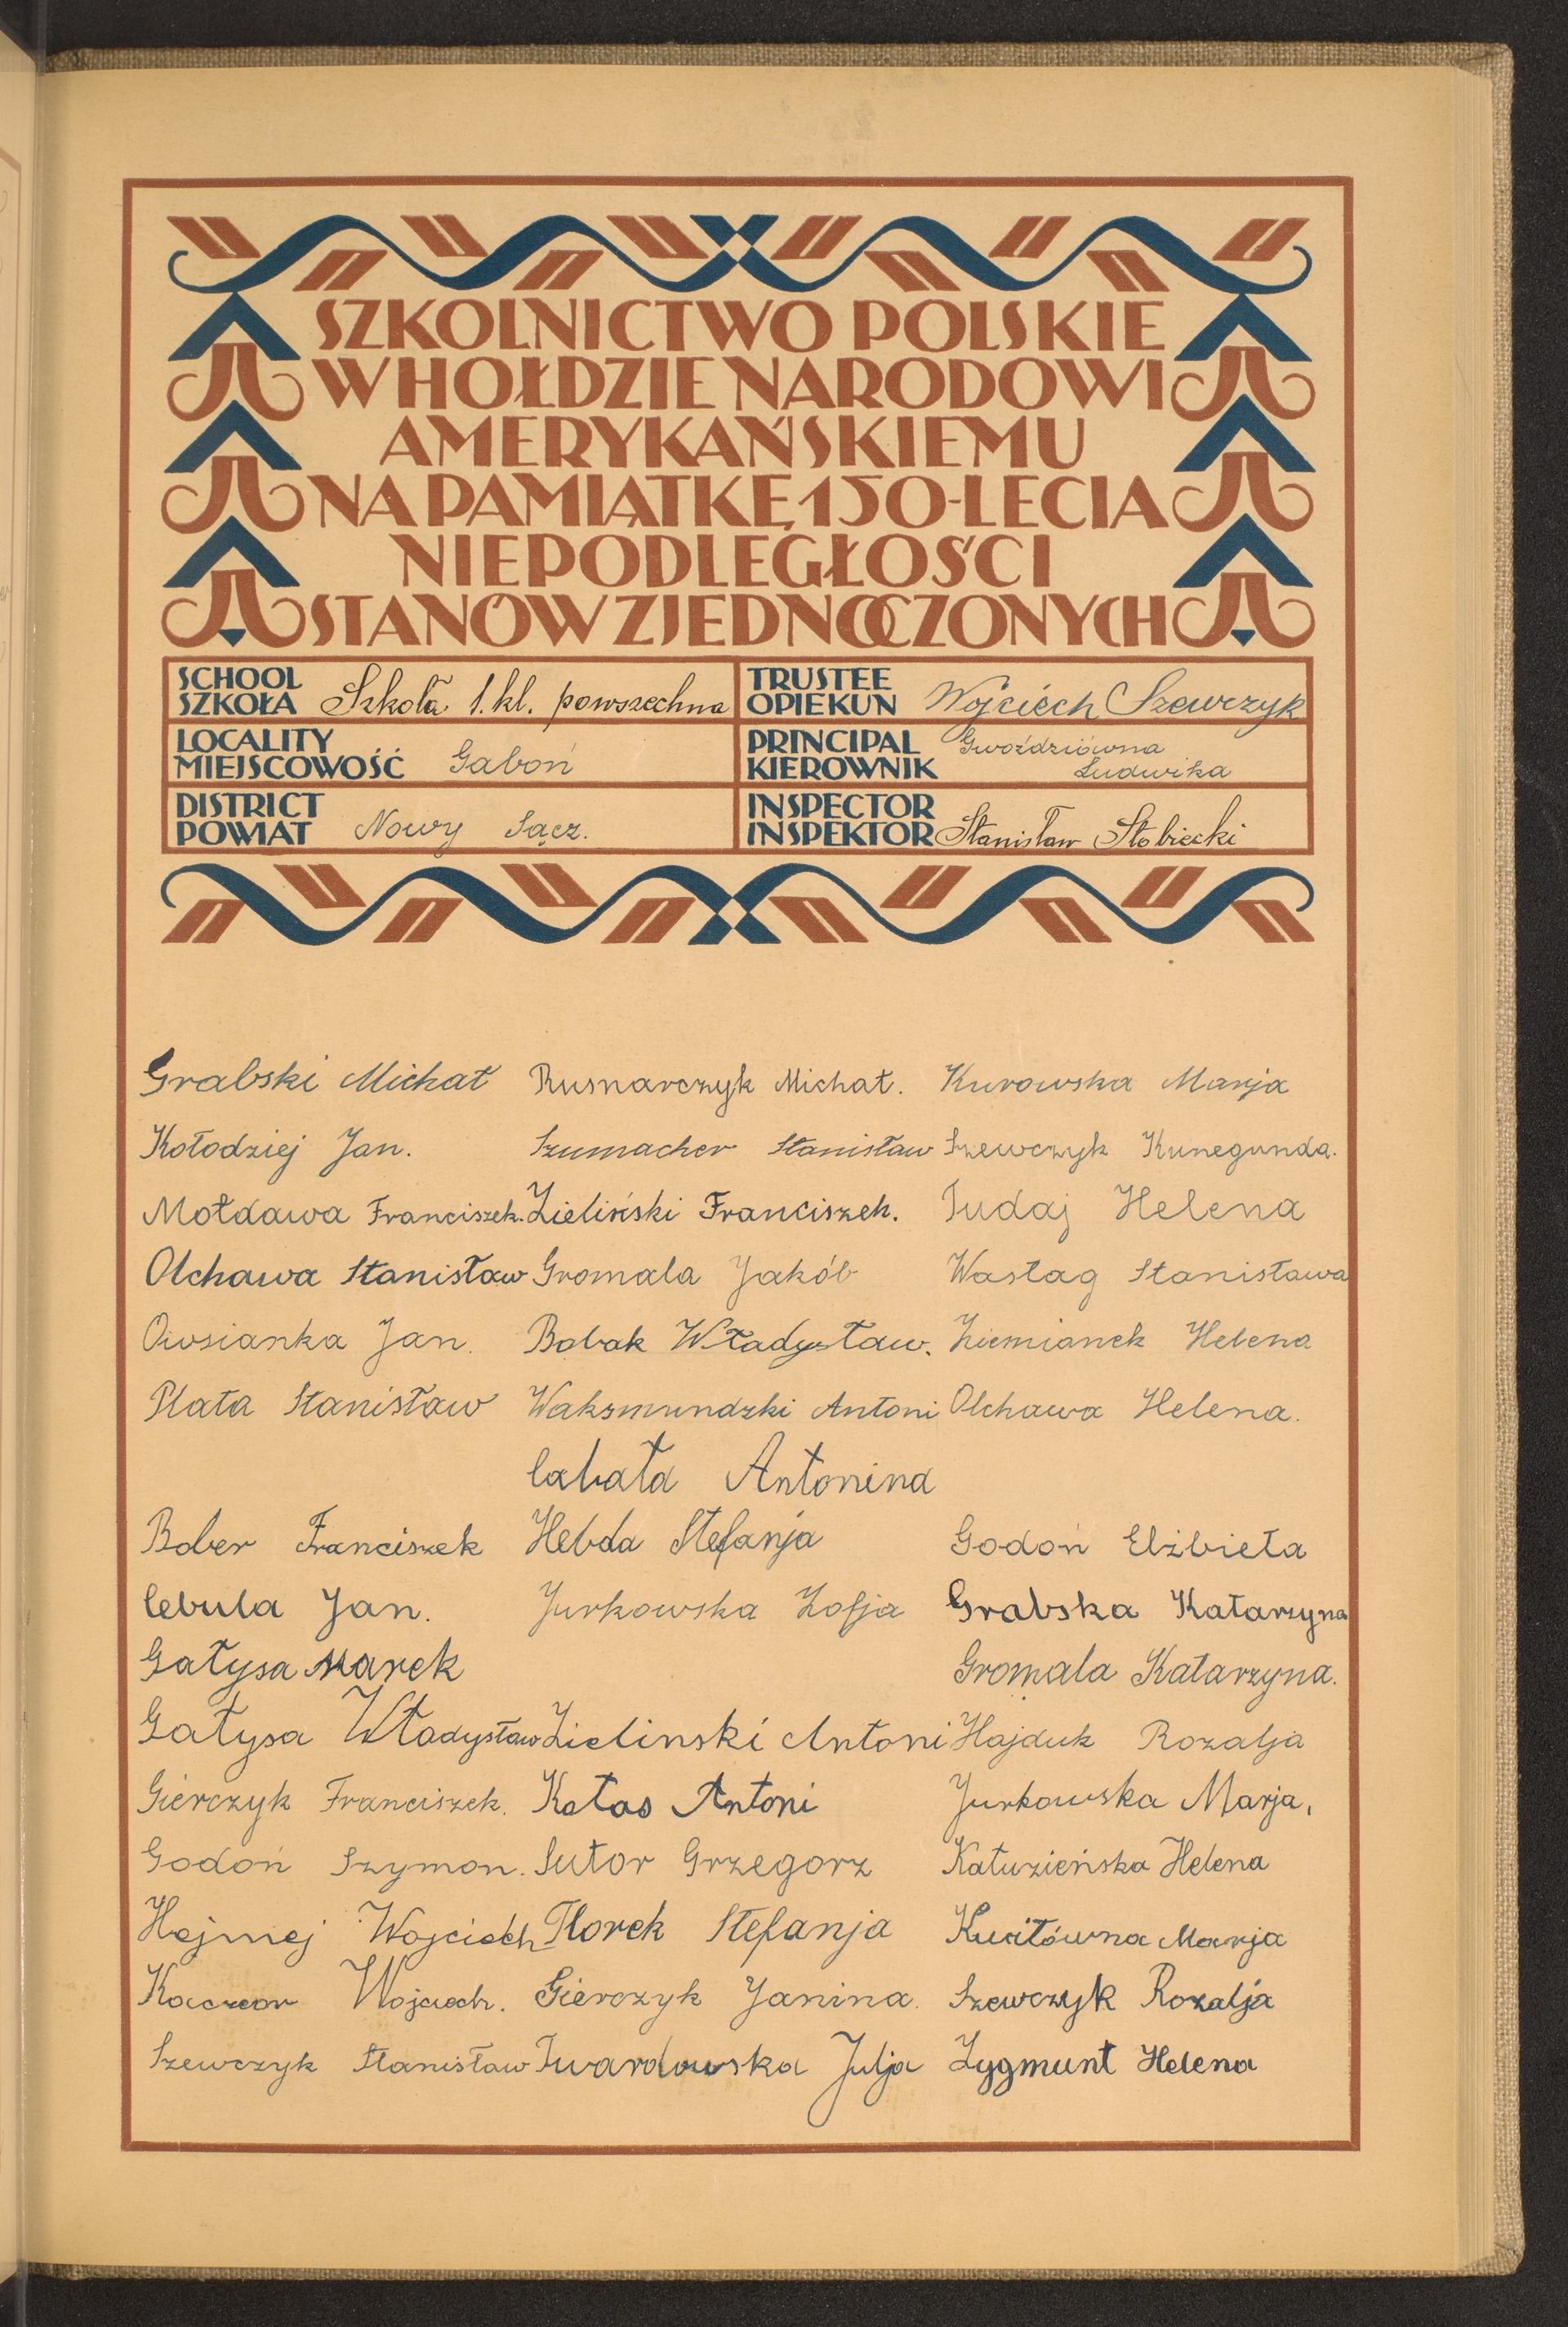 SZKOLNICTWO POLSKIE
W HOŁDZIE NARODOWI
AMERYKAŃSKIEMU
NA PAMIĄTKĘ 150-LECIA
NIEPODLEGŁOŚCI
STANÓW ZJEDNOCZONYCH
SCHOOL
SZKOŁA Szkoła 1. kl. powszechna
TRUSTEE
OPIEKUN Wojciech Szewczyk
LOCALITY
MIEJSCOWOŚĆ Gaboń
PRINCIPAL
KIEROWNIK Gwoździówna
Ludwika
DISTRICT
POWIAT Nowy Sącz.
INSPECTOR
INSPEKTOR Stanisław Słobiecki
Grabski Michał
Kołodziej Jan.
Mołdawa Franciszek.
Olchawa Stanisław
Owsianka Jan.
Plata Stanisław
Bober Franciszek
Cebula Jan.
Gałysa Marek
Gałysa Władysław
Gierczyk Franciszek.
Godoń Szymon.
Hejmej Wojciech
Kaczor Wojciech.
Szewczyk Stanisław
Rusnarczyk Michał.
Szumacher Stanisław
Zieliński Franciszek.
Gromala Jakób
Bobak Władysław.
Waksmundzki Antoni
Cabała Antonina
Hebda Stefanja
Jurkowska Zofja
Zielinski Antoni
Kotas Antoni
Sutor Grzegorz
Florek Stefanja
Gierczyk Janina.
Twardowska Julja
Kurowska Marja
Szewczyk Kunegunda.
Tudaj Helena
Wastag Stanisława
Ziemianek Helena
Olchawa Helena.
Godoń Elżbieta
Grabska Katarzyna
Gromala Katarzyna.
Hajduk Rozalja
Jurkowska Marja,
Kałuzieńska Helena
Marja
Szewczyk Rozalja
Zygmunt Helena